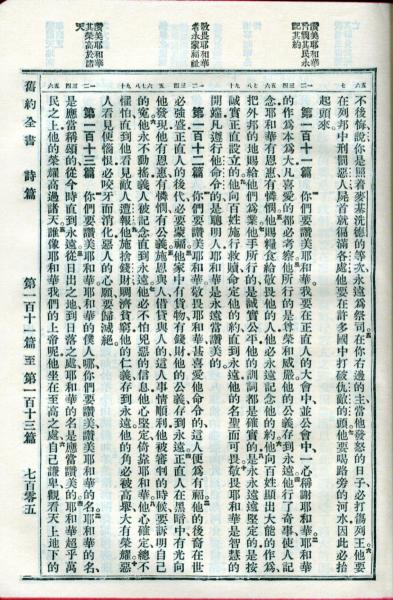 讚美耶和華
其民永
記其約
敬畏耶和華
者永蒙福祉
讚美耶和華
其榮高於諸
天
不後悔說你是照着麥基洗德的等次永遠爲祭司在你右邊的主當他發怒的日子必打傷列王他要
在列邦中刑罰惡人屍首就徧滿各處他要在許多國中打破仇敵的頭他要喝路旁的河水因此必抬
起頭來
第一百十一篇 你們要讚美耶和華我要在正直人的大會中並公會中一心稱謝耶和華耶和華
的作爲本爲大凡喜愛的都必考察他所行的是尊榮和威嚴他的公義存到永遠他行了奇事使人記
念耶和華有恩惠有憐憫他賜糧食給敬畏他的人他必永遠記念他的約他向百姓顯出大能的作爲
把外邦的地賜給他們爲業他手所行的是誠實公平他的訓詞都是確實的是永永遠遠堅定的是按
誠實正直設立的他向百姓施行救贖命定他的約直到永遠他的名聖而可畏敬畏耶和華是智慧的
開端凡遵行他命令的是聰明人耶和華是永遠當讚美的
第一百十二篇 你們要讚美耶和華敬畏耶和華甚喜愛他命令的這人便爲有福他的後裔在世
必強盛正直人的後代必要蒙福他家中有貨物有錢財他的公義存到永遠正直人在黑暗中有光向
他發現他有恩惠有憐憫有公義施恩與人借貸與人的這人事情順利他被審判的時候要訴明自己
的冤他永不動搖義人被記念直到永遠他必不怕兇惡的信息他心堅定倚靠耶和華他心確定總不
懼怕直到他看見敵人遭報他施捨錢財賙濟貧窮他的仁義存到永遠他的角必被高舉大有榮耀惡
人看見便惱恨必咬牙而消化惡人的心願要歸滅絕
第一百十三篇 你們要讚美耶和華耶和華的僕人哪你們要讚美讚美耶和華的名耶和華的名
是應當稱頌的從今時直到永遠從日出之地到日落之處耶和華的名是應當讚美的耶和華超乎萬
民之上他的榮耀高過諸天誰像耶和華我們的上帝呢他坐在至高之處自己謙卑觀看天上地下的
舊約全書 詩篇 第一百十一篇至第一百十三篇 七百零五